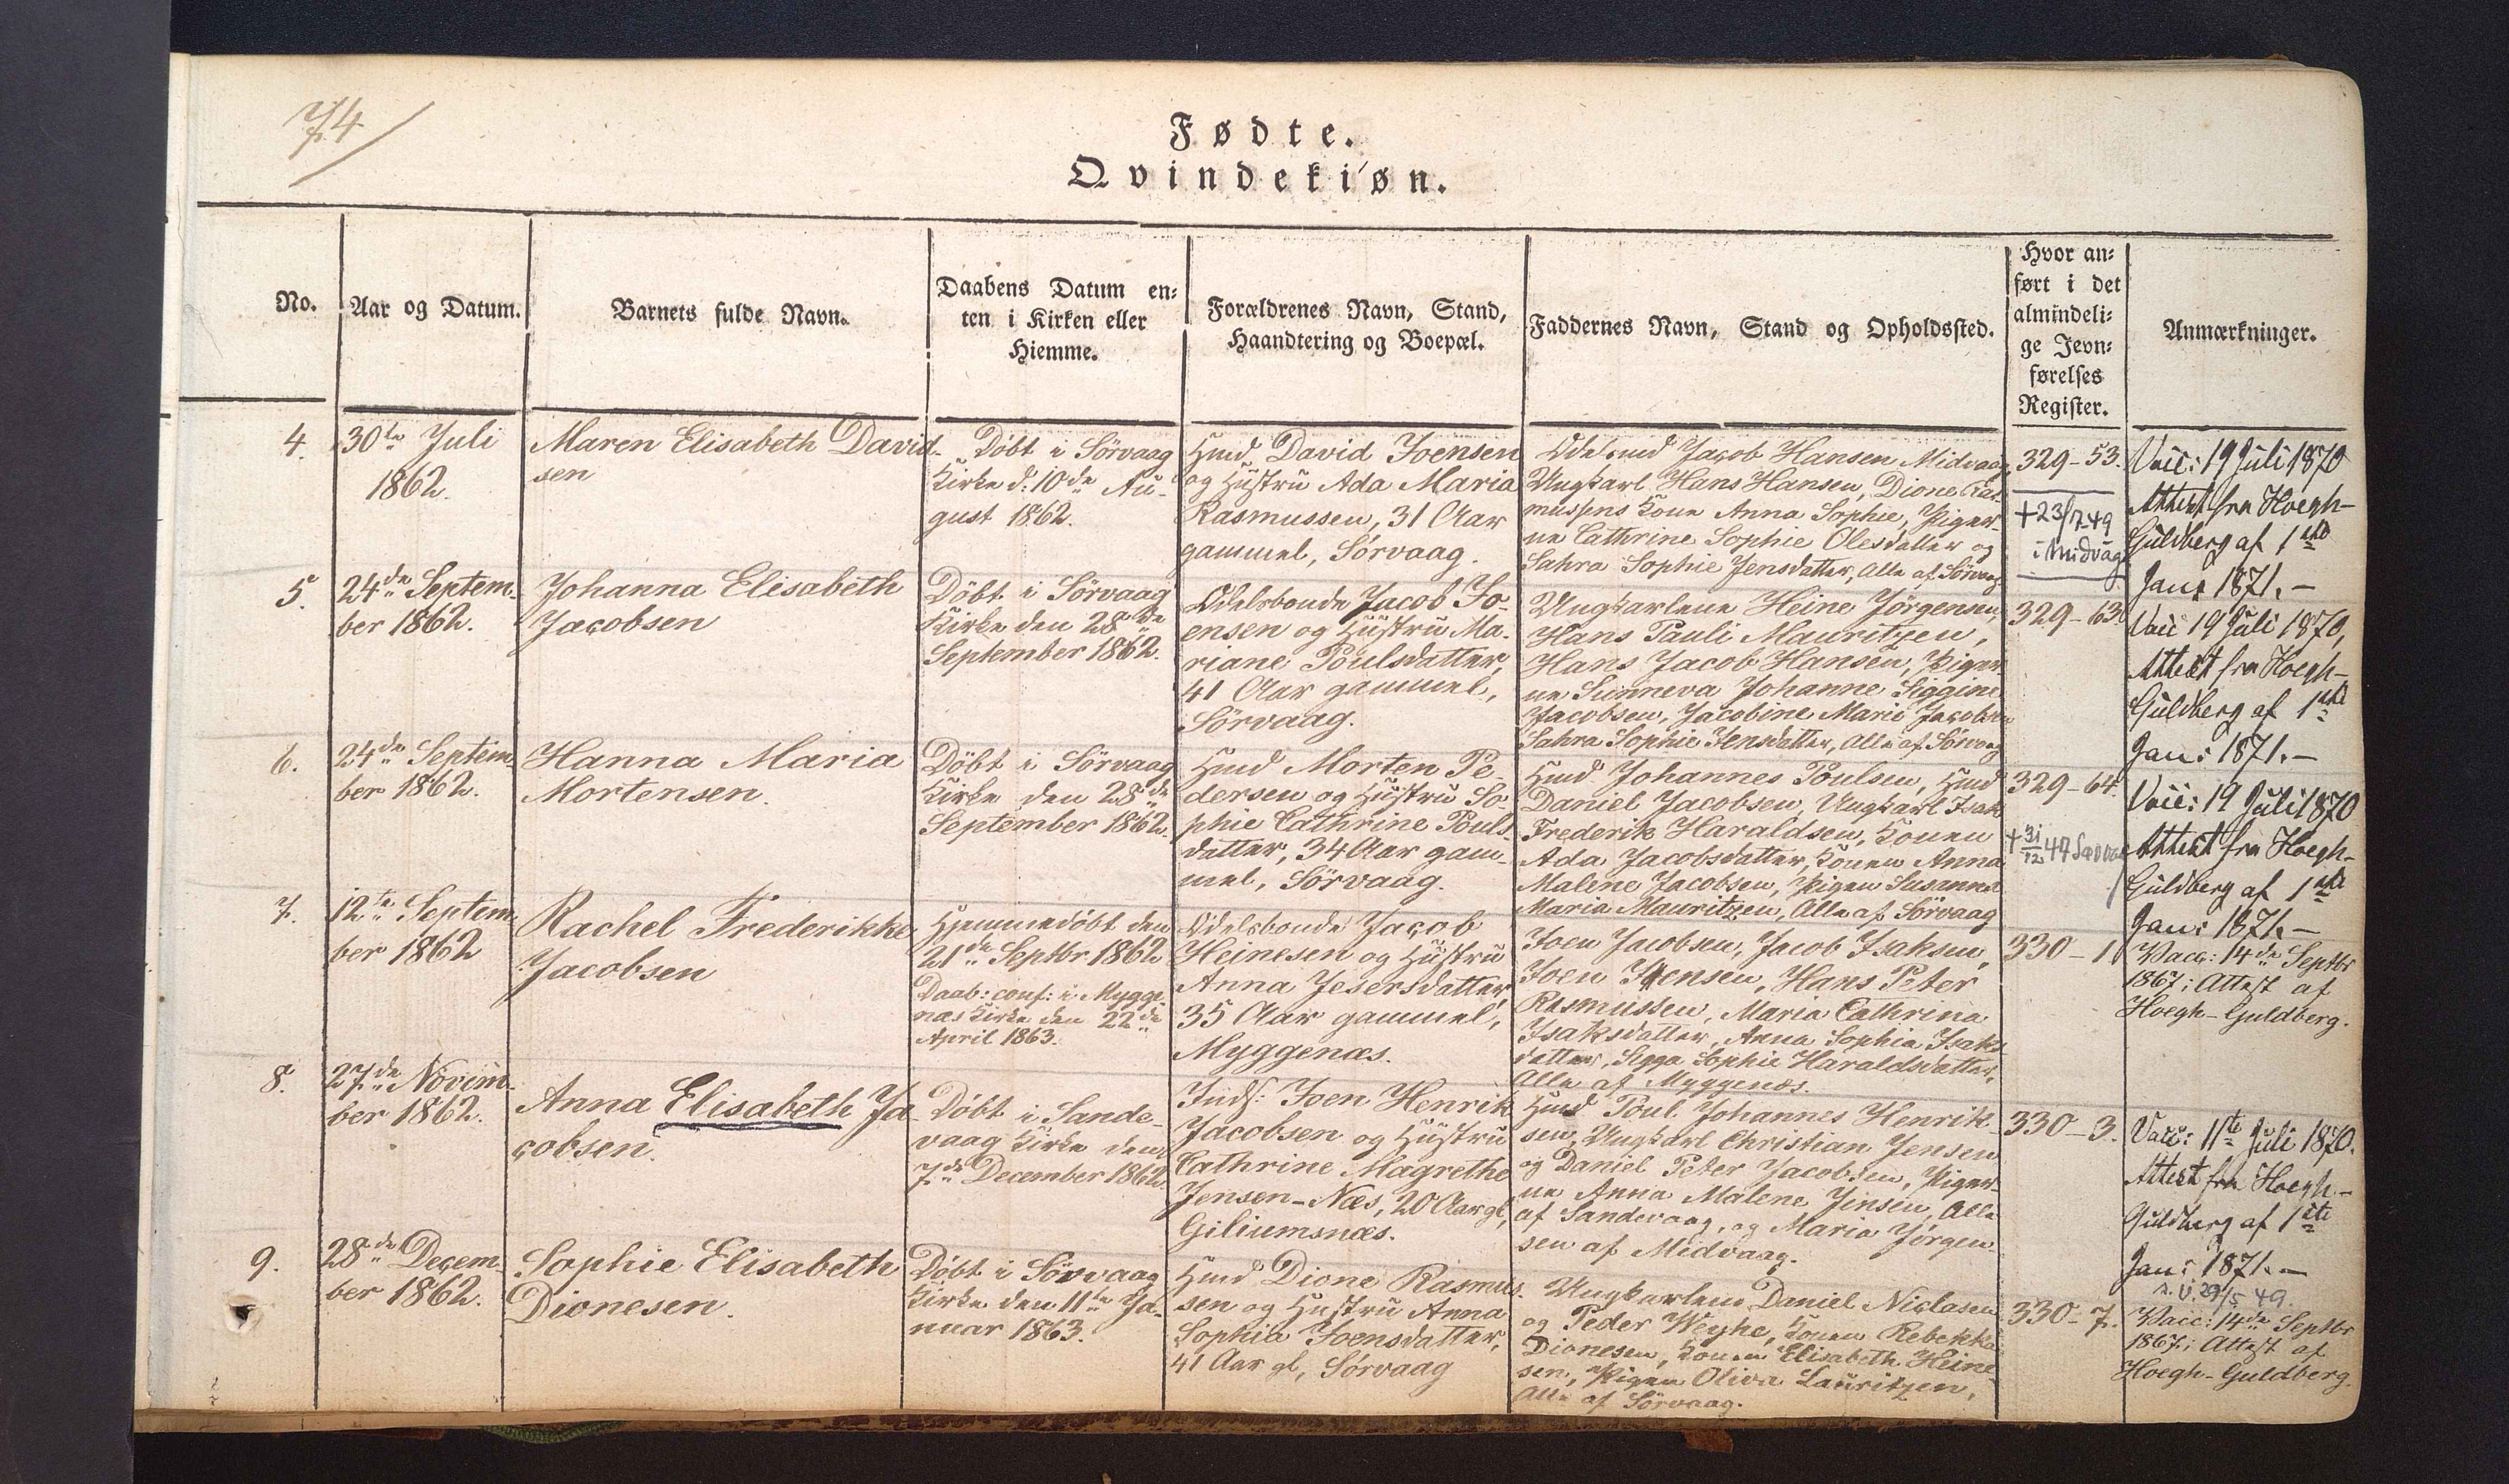 74
Fødte.
Qvindekiøn.
No.
Aar og Datum.
Barnets fulde Navn.
Daabens Datum en-
ten i Kirken eller
Hiemme.
Forældrenes Navn, Stand,
Haandtering og Boepæl.
Faddernes Navn, Stand og Opholdssted.
Hvor an-
ført i det
almindeli-
ge Jevn-
førelses
Register.
Anmærkninger.
4.
30te Juli
1862.
Maren Elisabeth David-
sen
Döbt i Sörvaag
Kirke d: 10de Au-
gust 1862.
Hmd David Joensen
og Hustru Ada Maria
Rasmussen, 31 Aar
gammel, Sörvaag.
Odelsmd Jacob Hansen Midvaag
Ungkarl Hans Hansen, Dione Ras-
mussens Kone Anna Sophie, Piger-
ne Cathrine Sophie Olesdatter og
Sahra Sophie Jensdatter, Alle af Sörvaag
329-53.
+23/7 49
i Midvåg
Vacc: 19 Juli 1870
Attest fra Hoegh-
Guldberg af 1ste
Jan: 1871.-
5.
24de Septem-
ber 1862.
Johanna Elisabeth
Jacobsen
Döbt i Sörvaag
Kirke den 28de
September 1862.
Odelsbonde Jacob Jo-
ensen og Hustru Ma-
riane Poulsdatter,
41 Aar gammel,
Sörvaag.
Ungkarlene Heine Jörgensen,
Hans Pauli Mauritzen,
Hans Jacob Hansen, Piger-
ne Sunneva Johanne Siggine
Jacobsen, Jacobine Marie Jacobsen
Sahra Sophie Jensdatter, Alle af Sörvaag
329-63.
Vacc 19 Juli 1870,
Attest fra Hoegh-
Guldberg af 1ste
Jan: 1871.-
6.
24de Septem-
ber 1862.
Hanna Maria
Mortensen.
Döbt i Sörvaag
Kirke den 28de
September 1862.
Hmd Morten Pe-
dersen og Hustru So-
phie Cathrine Pouls-
datter, 34 Aar gam-
mel, Sörvaag.
Hmd Johannes Poulsen, Hmd
Daniel Jacobsen, Ungkarl Isak
Frederik Haraldsen, Konen
Ada Jacobsdatter, Konen Anna
Malene Jacobsen, Pigen Susanna
Maria Mauritzen, Alle af Sörvaag
329-64.
+31/12 47
Vacc: 19 Juli 1870
Attest fra Hoegh-
Guldberg af 1ste
Jan: 1871.-
7.
12te Septem-
ber 1862
Rachel Frederikke
Jacobsen
Hjemmedöbt den
21de Septbr 1862
Daab: conf: i Mygge-
næs Kirke den 22de
April 1863.
Odelsbonde Jacob
Heinesen og Hustru
Anna Jesersdatter
35 Aar gammel,
Myggenæs.
Joen Jacobsen, Jacob Isaksen,
Joen Jensen, Hans Peter
Rasmussen, Maria Cathrina
Isaksdatter, Anna Sophia Isaks-
datter, Sigga Sophie Haraldsdatter,
Alle af Myggenæs.
330-1
Vacc: 14de Septbr
1867; Attest af
Hoegh-Guldberg.
8.
27de Novem-
ber 1862.
Anna Elisabeth Ja-
cobsen.
Döbt i Sande-
vaag Kirke den
7de December 1862.
Inds: Joen Henrik
Jacobsen og Hustru
Cathrine Magrethe
Jensen-Næs, 20 Aar gl,
Giliumsnæs.
Hmd Poul Johannes Henrik-
sen, Ungkarl Christian Jensen
og Daniel Peter Jacobsen, Piger-
ne Anna Malene Jensen, Alle
af Sandevaag, og Maria Jörgen-
sen af Midvaag.
330-3.
Vacc: 11te Juli 1870.
Attest fra Hoegh-
Guldberg af 1ste
Jan: 1871.-
9.
28de Decem-
ber 1862.
Sophie Elisabeth
Dionesen.
Döbt i Sörvaag
Kirke den 11te Ja-
nuar 1863.
Hmd Dione Rasmus-
sen og Hustru Anna
Sophia Joensdatter,
41 Aar gl, Sörvaag
Ungkarlene Daniel Niclasen
og Peder Weyhe, Konen Rebekka
Dionesen, Konen Elisabeth Heine-
sen, Pigen Oliva Lauritzen,
Alle af Sörvaag.
330-7.
29/5 49.
Vacc: 14de Septbr
1867; Attest af
Hoegh-Guldberg.